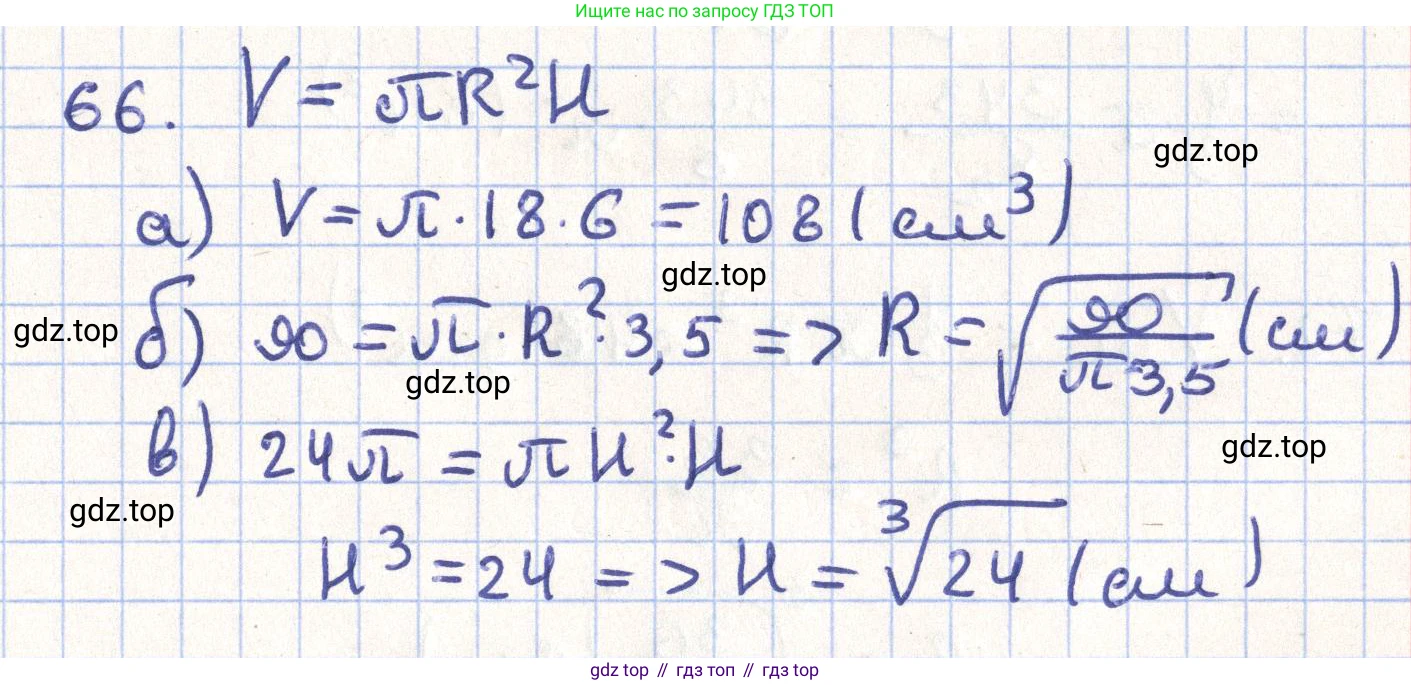 Ищите нас по запросу ГДЗ ТОП
66. V = πR²H
gdz.top
а) V = π · 18 · 6 = 108 (см³)
gdz.top
gdz.top
б) 90 = π · R² · 3,5 => R = √(90/π 3,5) (см)
gdz.top
в) 24π = π H² · H
gdz.top
gdz.top
H³ = 24 => H = ³√24 (см)
gdz top // гдз топ // гдз top